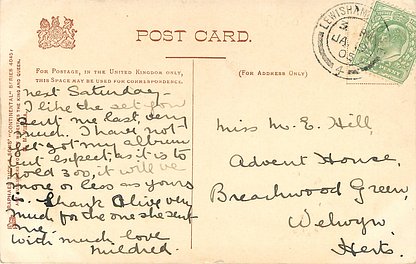 POST CARD.
FOR POSTAGE, IN THE UNITED KINGDOM ONLY, THIS
SPACE MAY BE USED FOR CORRESPONDENCE.
(FOR ADDRESS ONLY)
LEWISHAM
JA
next Saturday –
I like the set you
sent me last, very
much. I have not
yet got my album
but expect, as it is to
hold 300, it will be
more or less as yours
is. Thank Olive very
much for the one she sent
me.
With much love
Mildred.
Miss M. E. Hill,
Advent House,
Breachwood Green,
Welwyn,
Herts.